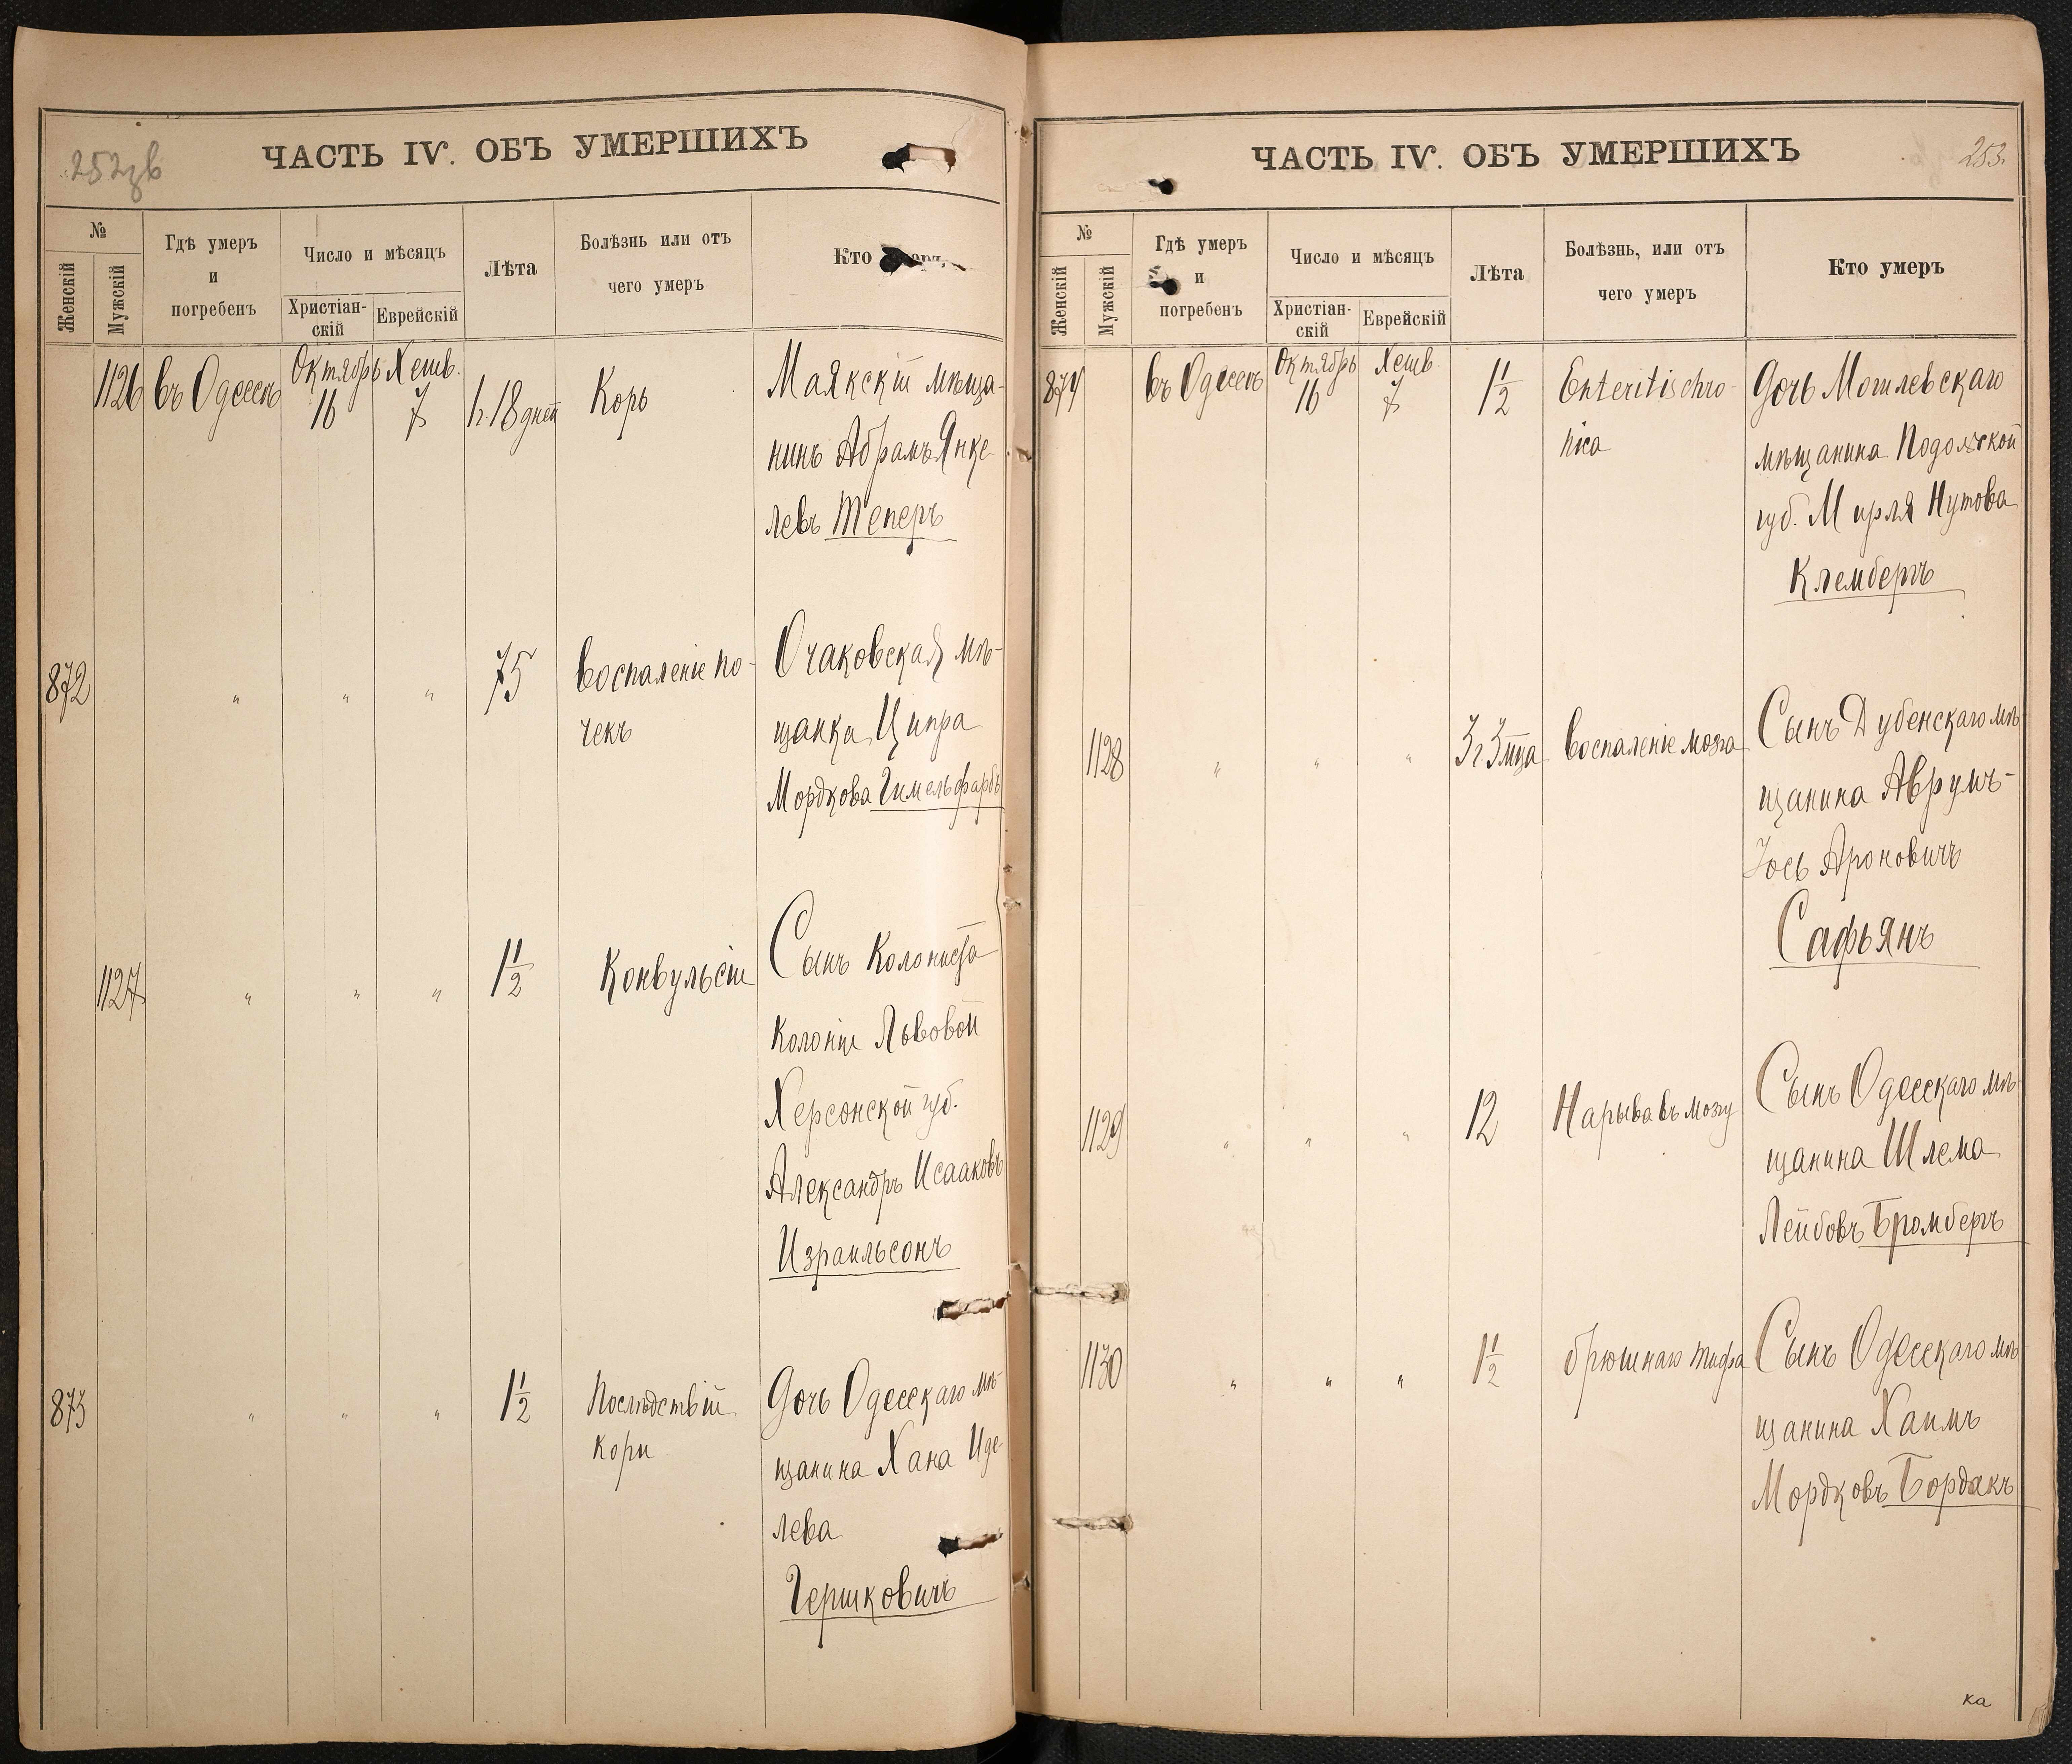 252зв
ЧАСТЬ IV. ОБЪ УМЕРШИХЪ
№
Женскій
Мужскій
Гдѣ умеръ
и
погребенъ
Число и мѣсяцъ
Христіан-
скій
Еврейскій
Лѣта
Болѣзнь или отъ
чего умеръ
Кто
1126 въ Одессѣ Октябрь 16 Хешв. 7 1г. 18 дней Корь
Маякскій мѣща-
нинъ Абрамъ Янке-
левъ Теперъ
872 " " " 75 Воспаленіе по-
чекъ
Очаковская мѣ-
щанка Ципра
Мордкова Гимельфарбъ
1127 " " " 1 1/2 Конвульсіи
Сынъ Колониста
Колоніи Львовой
Херсонской губ.
Александръ Исааковъ
Израильсонъ
873 " " " 1 1/2 Послѣдствій
кори
Дочь Одесскаго мѣ-
щанина Хана Иде-
лева
Гершковичъ
ЧАСТЬ IV. ОБЪ УМЕРШИХЪ
253.
№
Женскій
Мужскій
Гдѣ умеръ
и
погребенъ
Число и мѣсяцъ
Христіан-
скій
Еврейскій
Лѣта
Болѣзнь, или отъ
чего умеръ
Кто умеръ
874 въ Одессѣ Октябрь 16 Хешв. 7 1 1/2 Enteritis chro-
nica
Дочь Могилевскаго
мѣщанина Подольской
губ. Мирля Нутова
Клембергъ
1128 " " " 3 г. 3 мца Воспаленіе мозга
Сынъ Дубенскаго мѣ-
щанина Аврумъ-
Іось Ароновичъ
Сафьянъ
1129 " " " 12 Нарыва въ мозгу
Сынъ Одесскаго мѣ-
щанина Шлема
Лейбовъ Бромбергъ
1130 " " " 1 1/2 брюшнаго тифа
Сынъ Одесскаго мѣ-
щанина Хаимъ
Мордковъ Бордакъ
ка